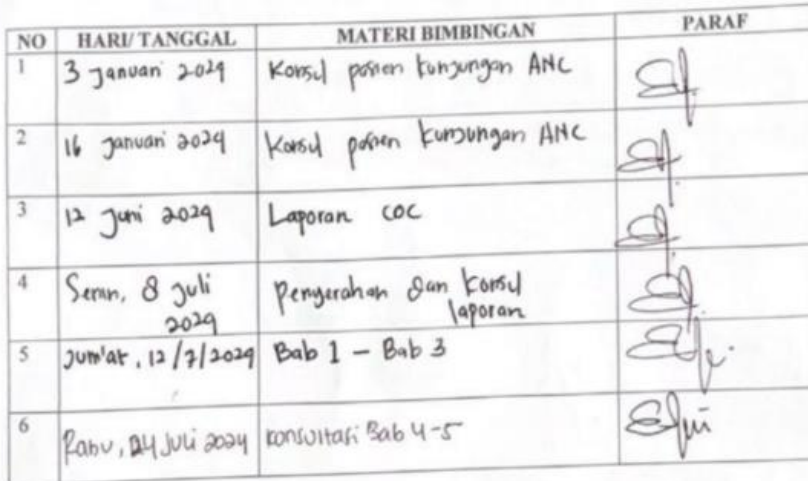 NO HARI/ TANGGAL MATERI BIMBINGAN PARAF
1 3 Januari 2024 Konsul pasien kunjungan ANC
2 16 Januari 2024 Konsul pasien kunjungan ANC
3 12 Juni 2024 Laporan COC
4 Senin, 8 Juli Penyerahan dan konsul
2024 laporan
5 Jum'at, 12/7/2024 Bab 1 – Bab 3
6 Rabu, 24 Juli 2024 konsultasi Bab 4-5